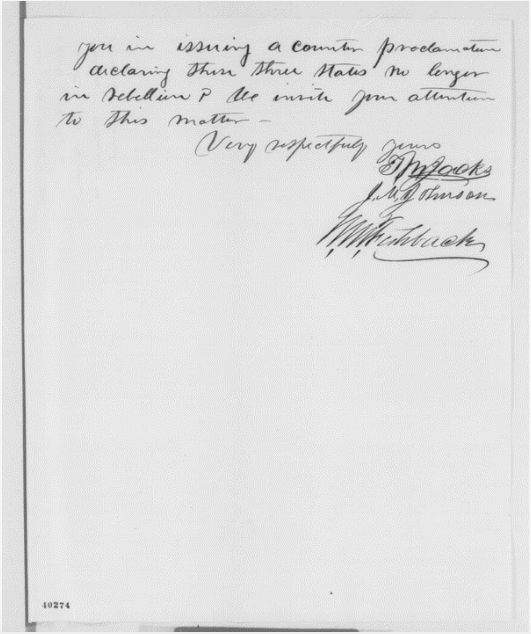 you in issuing a counter proclamation
declaring those three states no longer
in rebellion? We invite your attention
to this matter –
Very respectfully yours
T M Jacks
J. M. Johnson
W. M. Fishback
40274